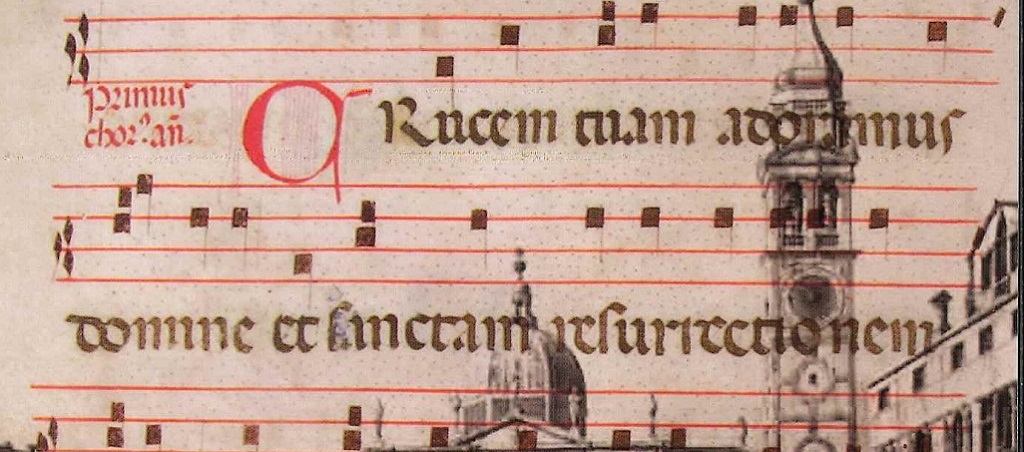 primus
chorꝰ. añ.
CRucem tuam adoramus
domine et sanctam resurrectionem